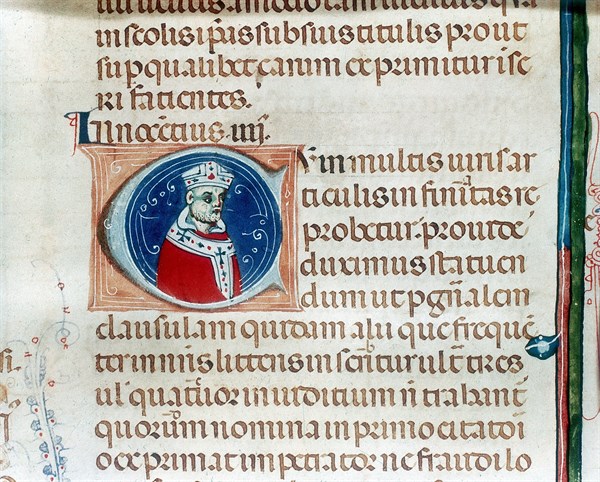 in scolis ipas subsuis titulis prout
sup qualibet earum exprimitur ise
ri facientes.
Innocetius.iiij.
Cvm in multis iuris ar
ticulis in finitas re
probetur. prouide
duximus statuen
dum ut p gnalem
clausulam quidam alii que freque
ter in nris litteris inscribitur ult tres
ul quatuor in iuditium n trahant
quorum nomina in primo citatoi
o exprimat impetrator ne fraudi lo